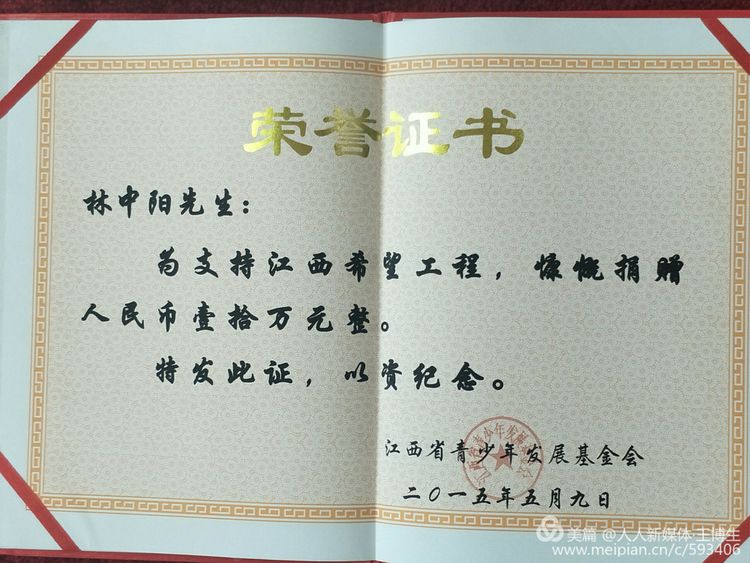 荣誉证书
林中阳先生：
为支持江西希望工程，慷慨捐赠
人民币壹拾万元整。
特发此证，以资纪念。
江西省青少年发展基金会
江西省青少年发展基金会
二〇一五年五月九日
美篇 @人人新媒体·主博生
www.meipian.cn/c/593406